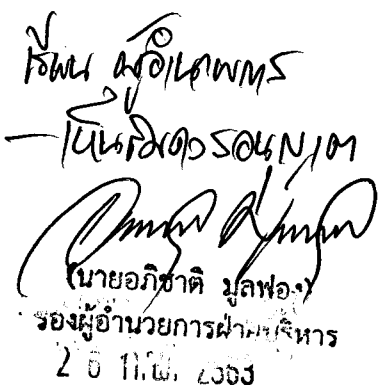 เรียน ผู้อำนวยการ
– เห็นควรอนุญาต
(นายอภิชาติ มูลฟอง)
รองผู้อำนวยการฝ่ายบริหาร
2 6 ก.พ. 2563